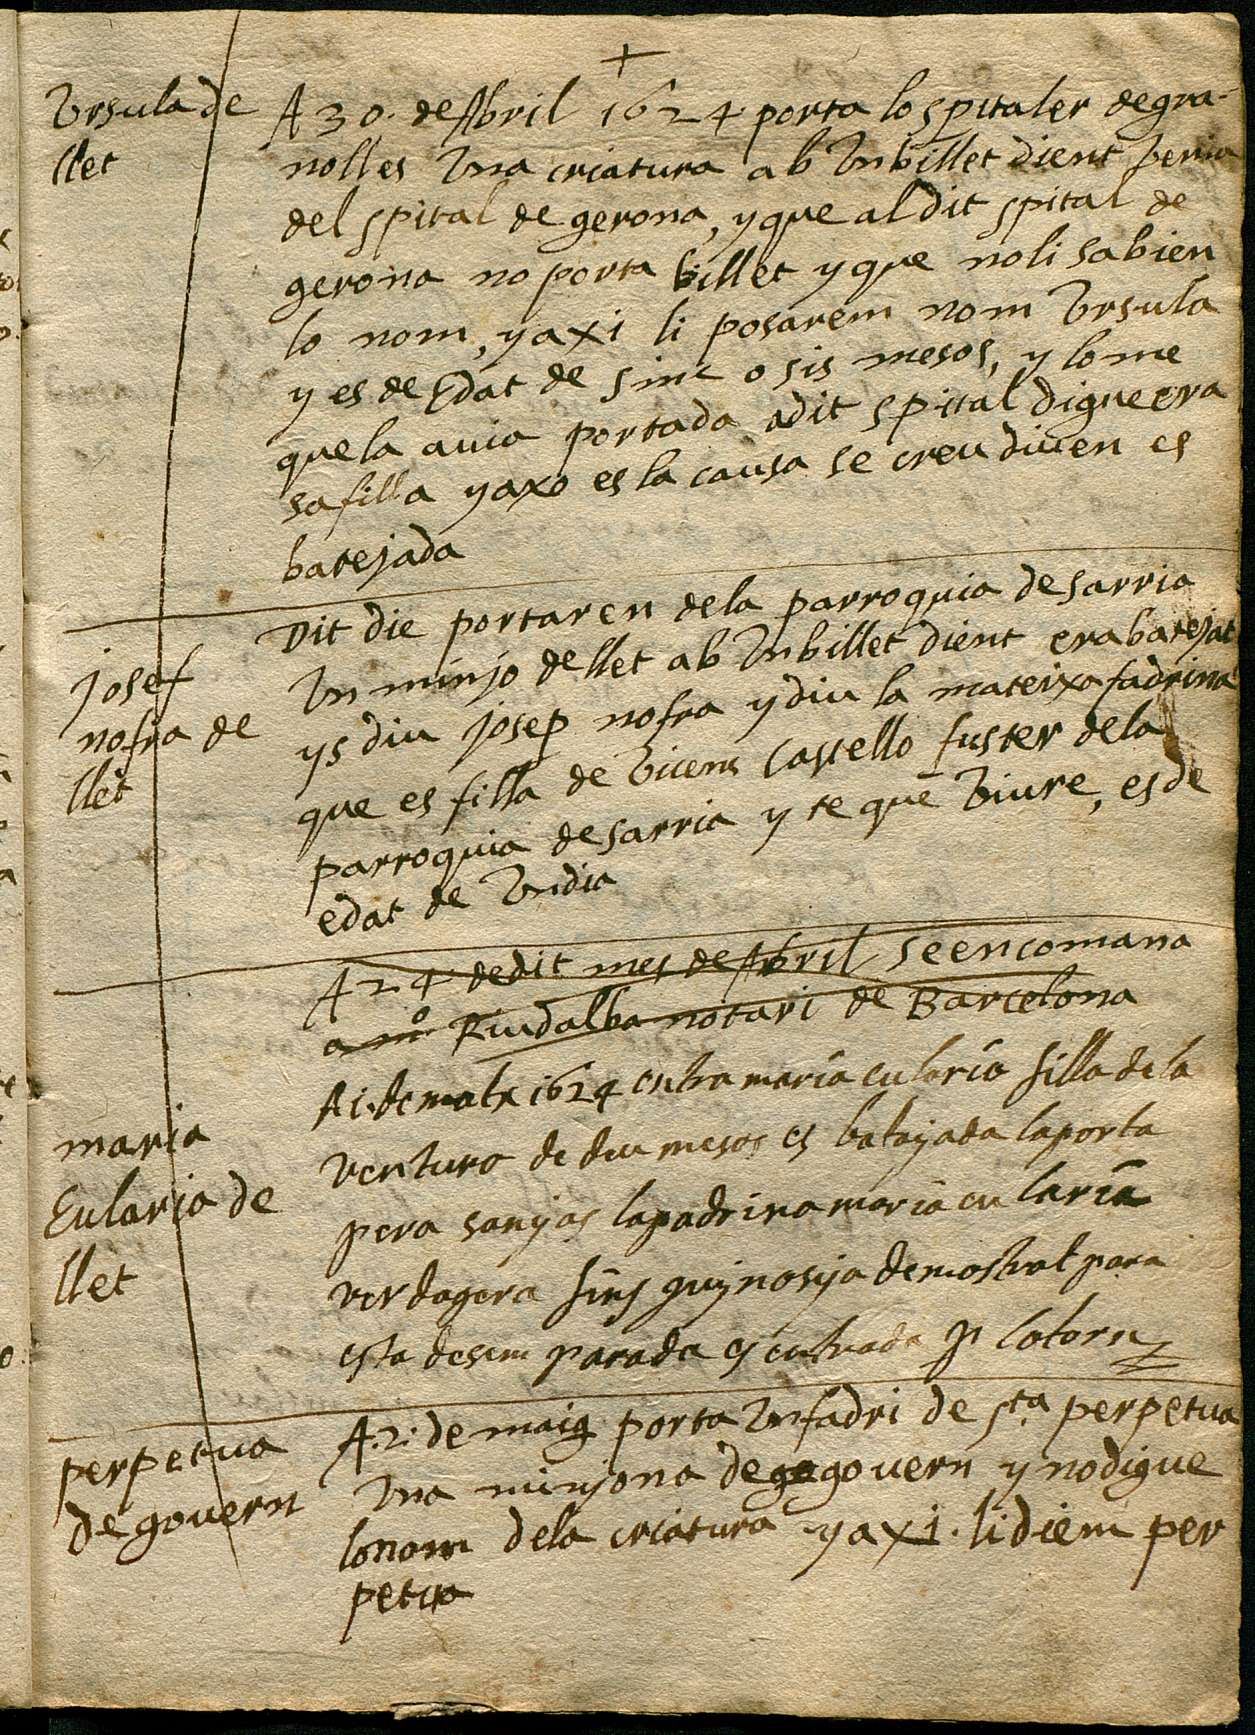 +
Vrsula de
llet
A 30. de Abril 1624 porta lo spitaler de gra-
nolles Vna criatura ab Vn billet dient Venia
del spital de gerona, y que al dit spital de
gerona no porta billet y que no li sabien
lo nom, y axi li posarem nom Vrsula
y es de Edat de sinc o sis mesos, y lo me
que la auia portada a dit spital digue era
sa filla y axo es la causa se creu diuen es
batejada
Josef
nofra de
llet
Dit die portaren de la parroquia de sarria
Vn minjo de llet ab Vn billet dient era batejat
ys diu Josep nofra y diu la mateixa fadrina
que es filla de Vicens Castello fuster de la
parroquia de sarria y te que Viure, es de
edat de Vn dia
A 24 de dit mes de Abril se encomana
a mº Riudalba notari de Barcelona
maria
Eularia de
llet
A i. de matx 1624 entra maria eularia filla de la
Ventura de deu mesos es batajada la porta
pera sanyas la padrina maria eu laria
verdagera sens guinosija de mostrat para
esta desem parada es entrada p lo torn
perpetua
de gouern
A .2. de maig porta Vn fadri de sta perpetua
Vna minjona de ge gouern y no digue
lo nom de la criatura y axi. li diem per
petua